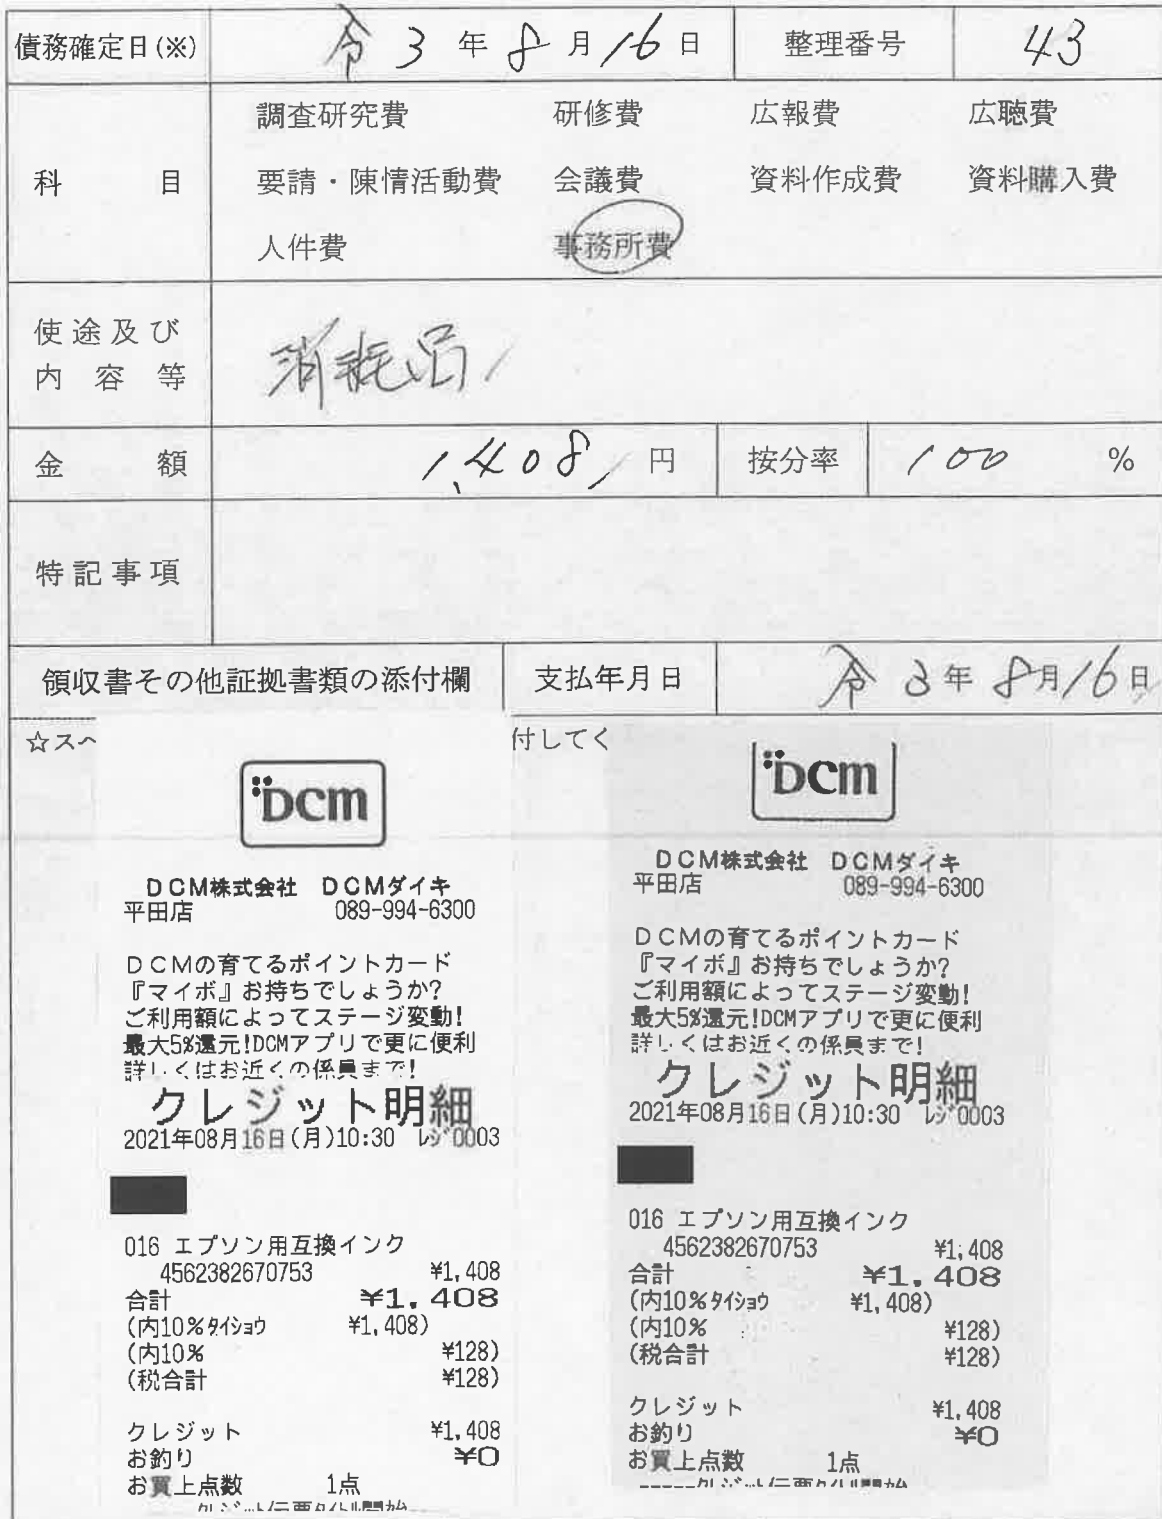 債務確定日(※) 令3年8月16日 整理番号 43
科目 調査研究費 研修費 広報費 広聴費
要請・陳情活動費 会議費 資料作成費 資料購入費
人件費 事務所費
使途及び内容等 消耗品
金額 1,408円 按分率 100 %
特記事項
領収書その他証拠書類の添付欄 支払年月日 令3年8月16日
☆スペ 付してく
DCM
DCM株式会社 DCMダイキ
平田店 089-994-6300
DCMの育てるポイントカード
『マイボ』お持ちでしょうか?
ご利用額によってステージ変動!
最大5%還元!DCMアプリで更に便利
詳しくはお近くの係員まで!
クレジット明細
2021年08月16日(月)10:30 レジ0003
016 エプソン用互換インク
4562382670753 ¥1,408
合計 ¥1,408
(内10%タイショウ ¥1,408)
(内10% ¥128)
(税合計 ¥128)
クレジット ¥1,408
お釣り ¥0
お買上点数 1点
クレジット伝票タイトル開始
DCM
DCM株式会社 DCMダイキ
平田店 089-994-6300
DCMの育てるポイントカード
『マイボ』お持ちでしょうか?
ご利用額によってステージ変動!
最大5%還元!DCMアプリで更に便利
詳しくはお近くの係員まで!
クレジット明細
2021年08月16日(月)10:30 レジ0003
016 エプソン用互換インク
4562382670753 ¥1,408
合計 ¥1,408
(内10%タイショウ ¥1,408)
(内10% ¥128)
(税合計 ¥128)
クレジット ¥1,408
お釣り ¥0
お買上点数 1点
-----クレジット伝票タイトル開始